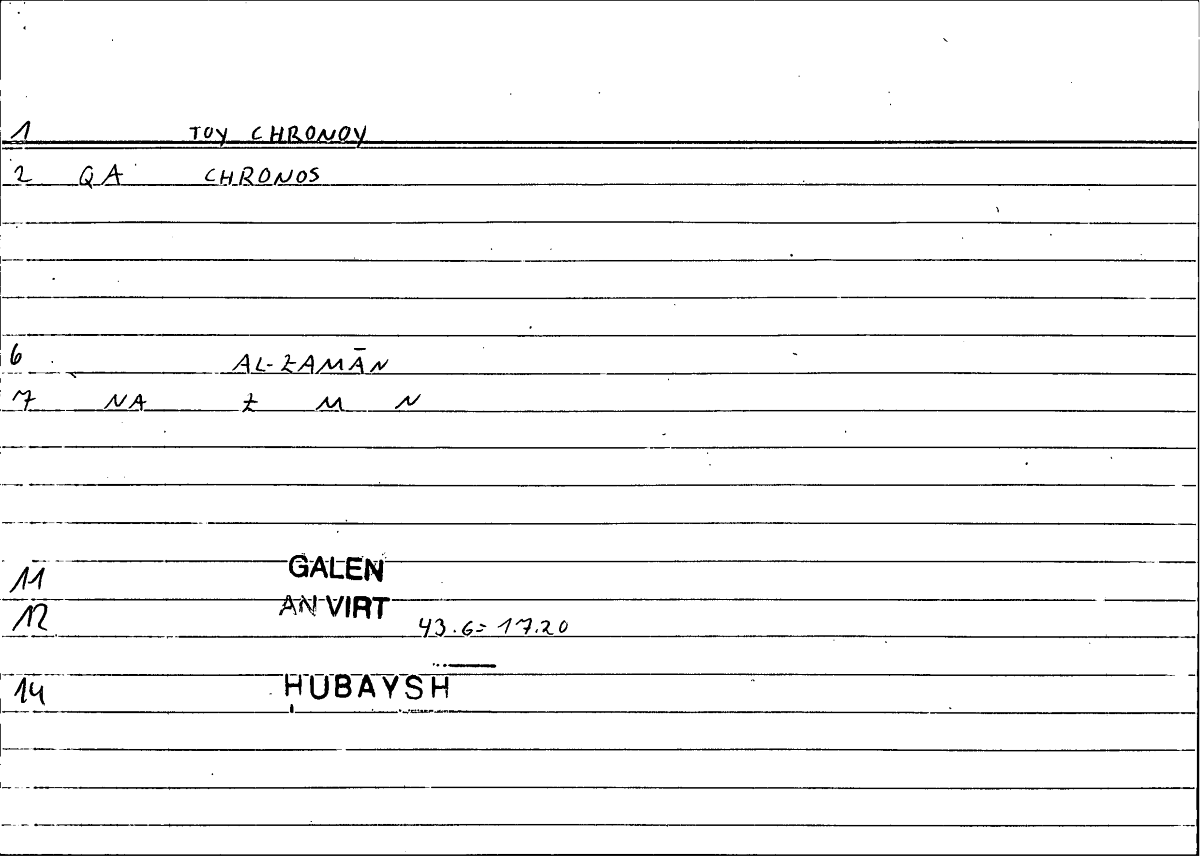 1 TOY CHRONOY
2 QA CHRONOS
6 AL-ZAMĀN
7 NA Z M N
11 GALEN
12 AN VIRT 43.6= 17.20
14 ḤUBAYSH